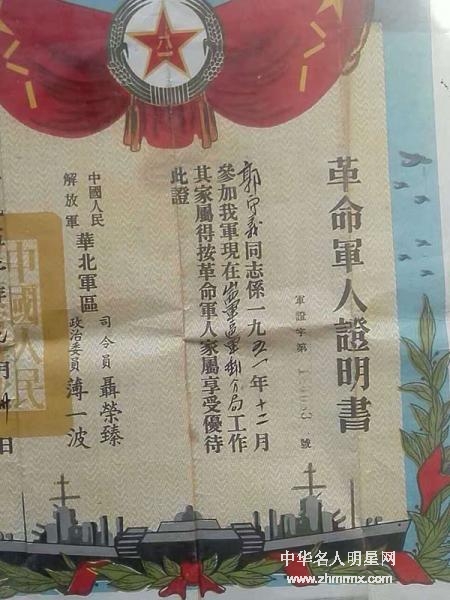 八一
革命軍人證明書
軍證字第 號
郭守義同志係一九五一年十二月
參加我軍現在 軍郵分局工作
其家屬得按革命軍人家屬享受優待
此證
中國人民
解放軍
華北軍區
司令員 聶榮臻
政治委員 薄一波
月 日
中國人民
中华名人明星网
www.zhmrmx.com